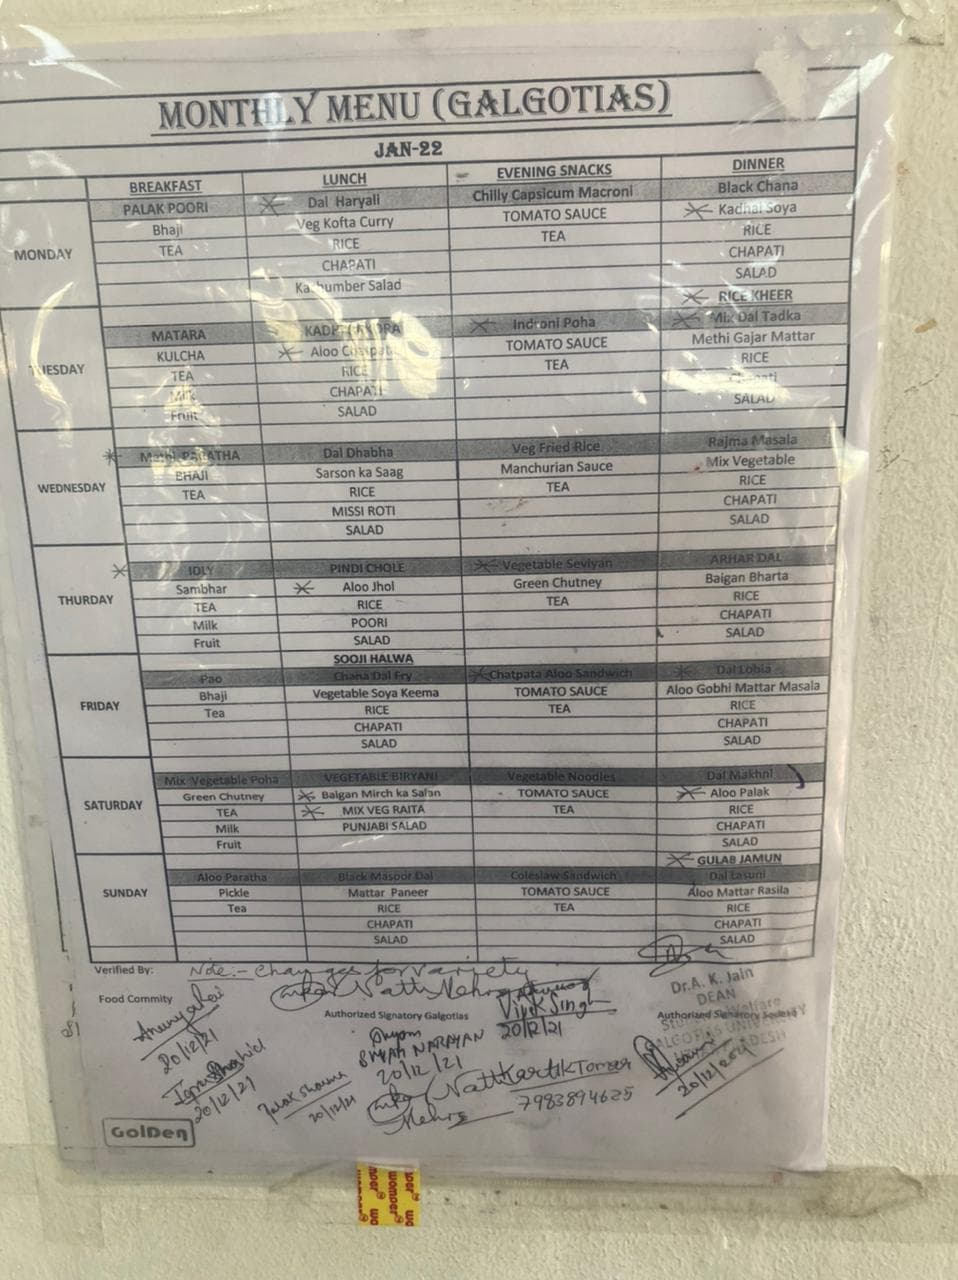 MONTHLY MENU (GALGOTIAS)
JAN-22
BREAKFAST LUNCH EVENING SNACKS DINNER
MONDAY
PALAK POORI Dal Haryali Chilly Capsicum Macroni Black Chana
Bhaji Veg Kofta Curry TOMATO SAUCE Kadhai Soya
TEA RICE TEA RICE
CHAPATI CHAPATI
Kachumber Salad SALAD
RICE KHEER
TUESDAY
MATARA Indroni Poha Mix Dal Tadka
KULCHA Aloo TOMATO SAUCE Methi Gajar Mattar
TEA RICE TEA RICE
Milk CHAPATI Chapati
Fruit SALAD SALAD
WEDNESDAY
Methi PARATHA Dal Dhabha Veg Fried Rice Rajma Masala
BHAJI Sarson ka Saag Manchurian Sauce Mix Vegetable
TEA RICE TEA RICE
MISSI ROTI CHAPATI
SALAD SALAD
THURDAY
IDLY PINDI CHOLE Vegetable Seviyan ARHAR DAL
Sambhar Aloo Jhol Green Chutney Baigan Bharta
TEA RICE TEA RICE
Milk POORI CHAPATI
Fruit SALAD SALAD
SOOJI HALWA
FRIDAY
Pao Chana Dal Fry Chatpata Aloo Sandwich Dal Lobia
Bhaji Vegetable Soya Keema TOMATO SAUCE Aloo Gobhi Mattar Masala
Tea RICE TEA RICE
CHAPATI CHAPATI
SALAD SALAD
SATURDAY
Mix Vegetable Poha VEGETABLE BIRYANI Vegetable Noodles Dal Makhni
Green Chutney Baigan Mirch ka Salan TOMATO SAUCE Aloo Palak
TEA MIX VEG RAITA TEA RICE
Milk PUNJABI SALAD CHAPATI
Fruit SALAD
GULAB JAMUN
SUNDAY
Aloo Paratha Black Masoor Dal Coleslaw Sandwich Dal Lasuni
Pickle Mattar Paneer TOMATO SAUCE Aloo Mattar Rasila
Tea RICE TEA RICE
CHAPATI CHAPATI
SALAD SALAD
Verified By: Note:- Changes for variety
Food Commity
Authorized Signatory Galgotias
Vivek Singh
20/12/21
Dr.A. K. Jain
DEAN
Authorized Signatory
20/12/21
SHYAM NARAYAN
20/12/21
20/12/21
Palak Sharma
20/12/21
Kartik Tomar
7983894625
20/12/21
GolDen